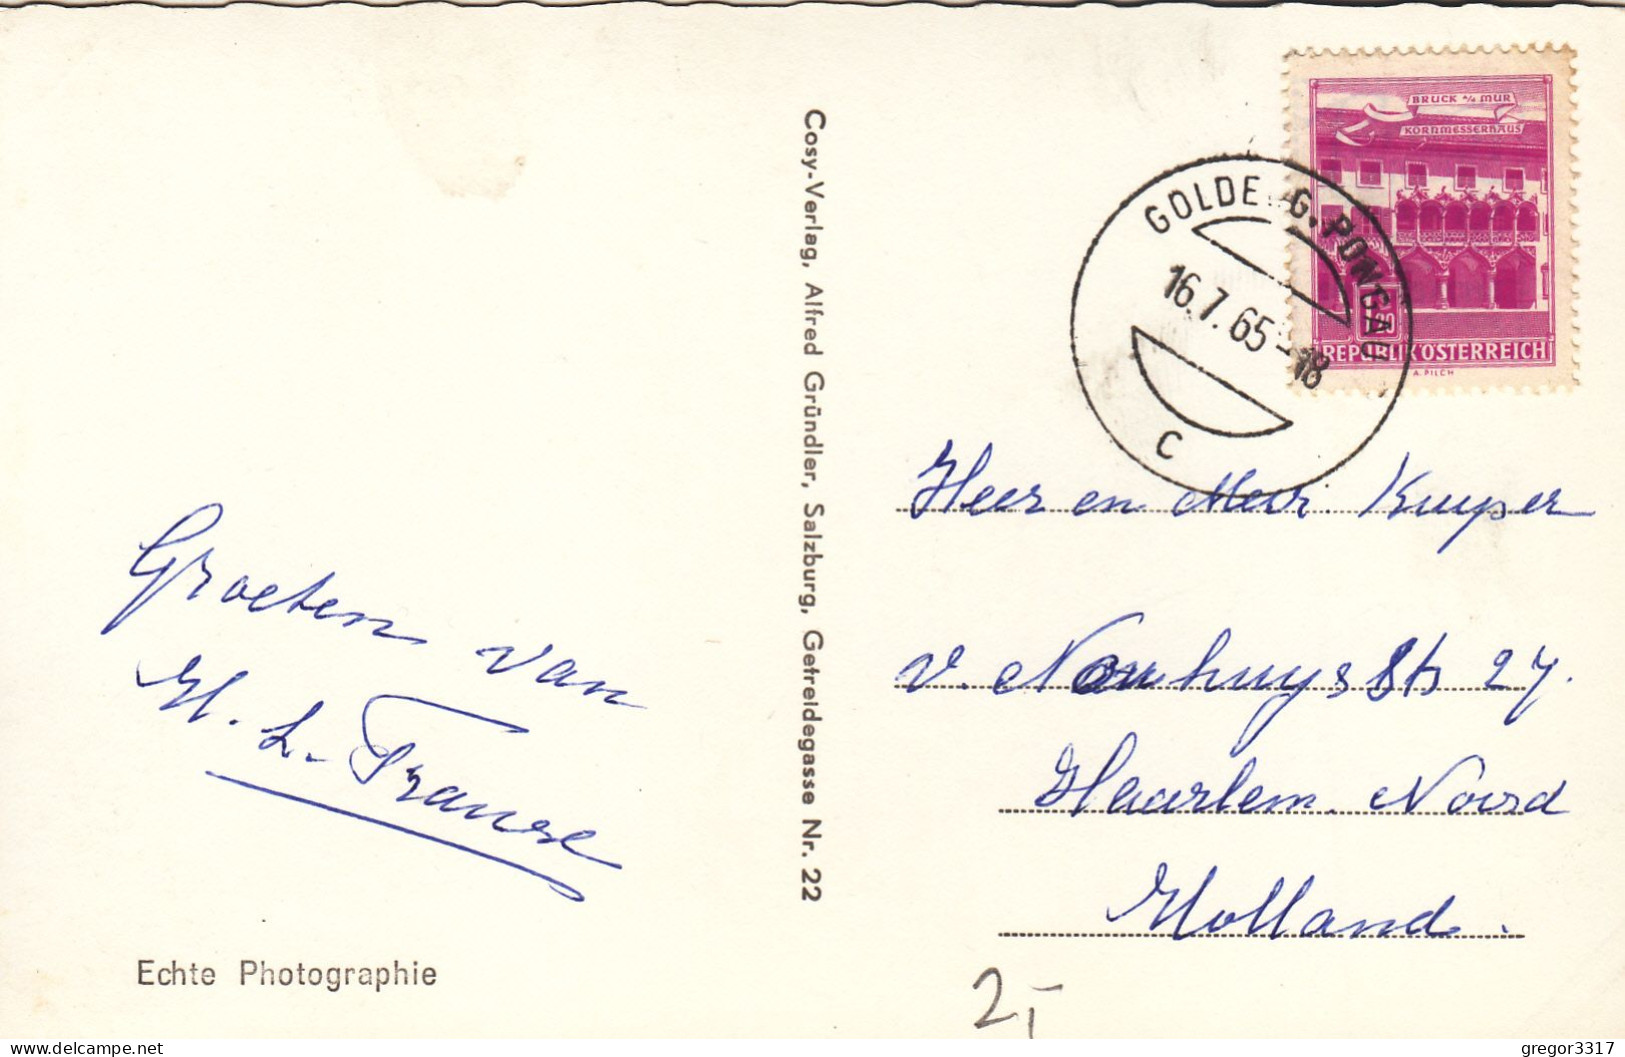 BRUCK a/d MUR
KORNMESSERHAUS
1.80
REPUBLIK ÖSTERREICH
A. PILCH
GOLDEGG, PONGAU
16.7.65-18
C
Groeten van
H. L. Franse
Echte Photographie
Cosy-Verlag, Alfred Gründler, Salzburg, Getreidegasse Nr. 22
Heer en Mevr. Kuyper
v. 27.
Haarlem. Noord
Holland.
2,-
gregor3317